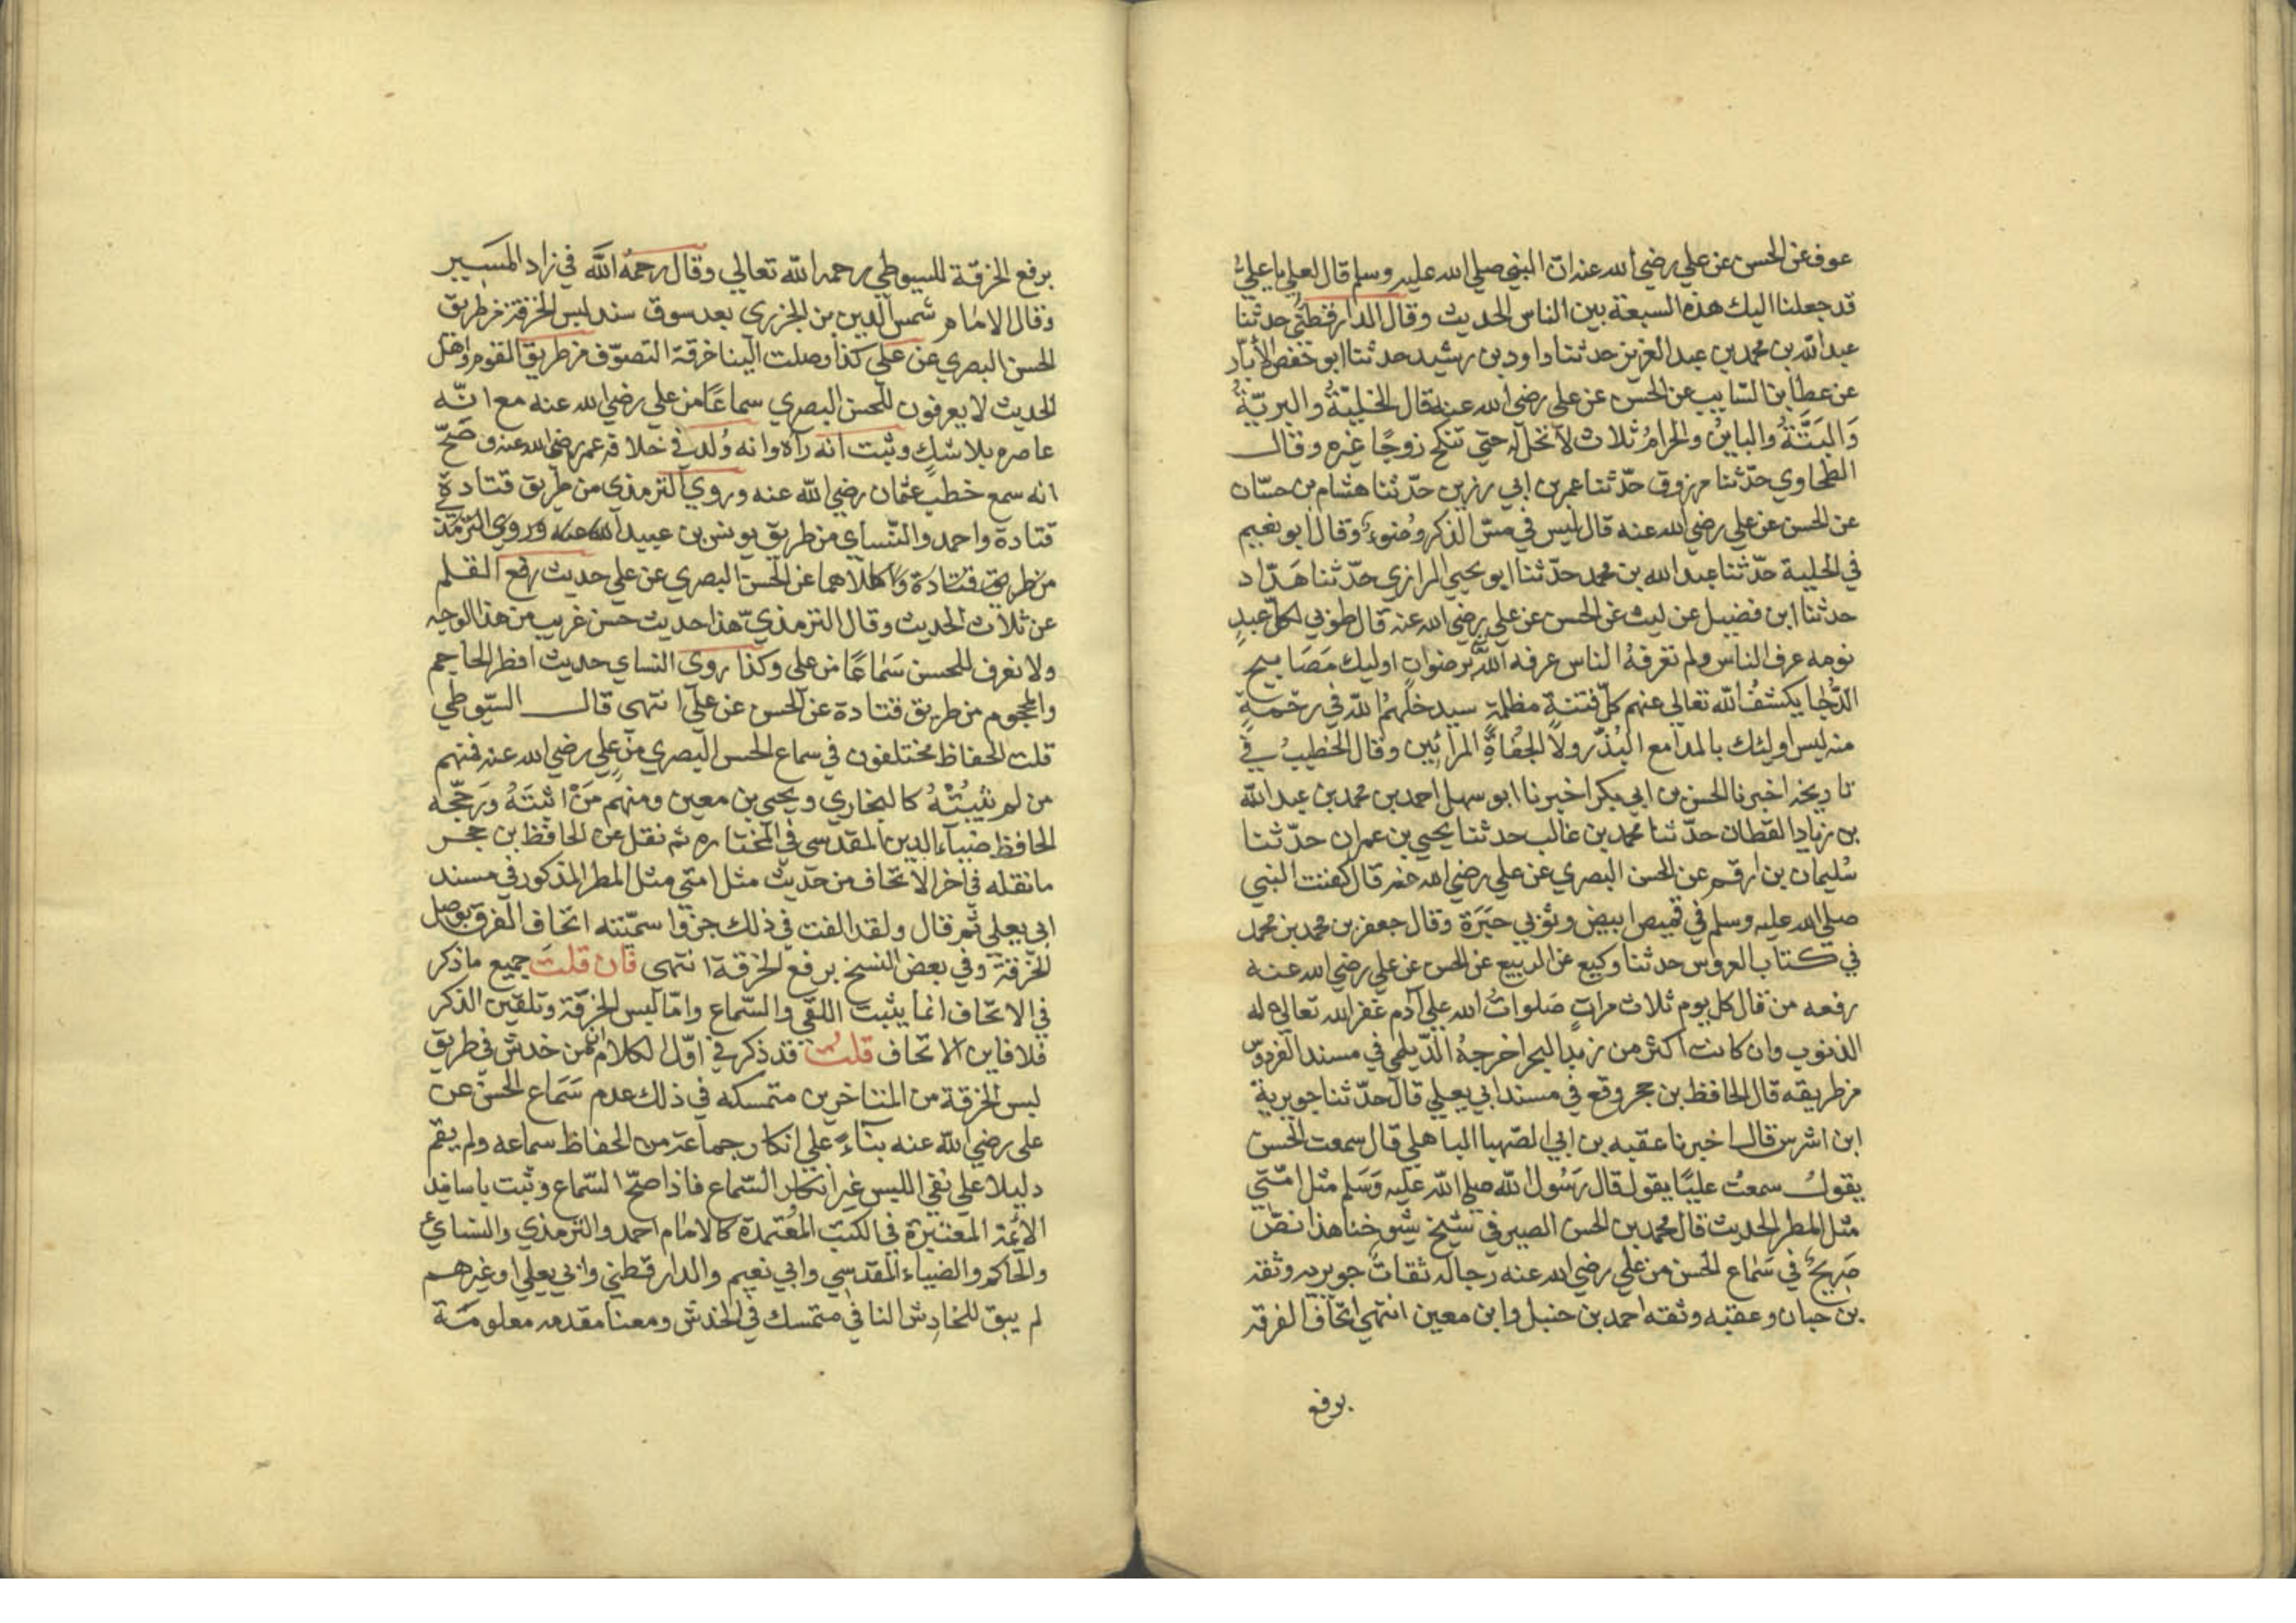 عوف عن الحسن عن علي رضي الله عنه ان النبي صلي الله عليه وسلم قال لعلي يا علي
قد جعلنا اليك هذه السبعة بين الناس الحديث وقال الدارقطني حدثنا
عبد الله بن محمد بن عبد العزيز حدثنا داود بن رشيد حدثنا ابو حفص الأبّار
عن عطا بن السايب عن الحسن عن علي رضي الله عنه قال الخليّةُ والبريّةُ
وَالبَتَّةُ والباينُ والحرامُ ثلاث لا تحل له حتي تنكح زوجًا غيره وقال
الطحاوي حدّثنا مرزوق حدّثنا عمر بن ابي رزين حدّثنا هشام بن حسّان
عن الحسن عن علي رضي الله عنه قال ليس في مسّ الذكر وُضوءٌ وقال ابو نعيم
في الحلية حدّثنا عبد الله بن محمد حدّثنا ابو يحيي الرازي حدّثنا هَنّاد
حدثنا ابن فضيل عن ليث عن الحسن عن علي رضي الله عنه قال طوبي لكلّ عبدٍ
نومه عرف الناس ولم تعرفهُ الناس عرفه اللهُ برضوانٍ اوليك مَصَابيح
الدّجا يكشفُ الله تعالي عنهم كلّ فتنةٍ مظلمةٍ سيدخلُهمُ الله في رحمةٍ
منه ليس اوليئك بالمدامع البُذّر ولا الجُفاةِ المرائين وقال الخطيبُ في
تاريخه اخبرنا الحسن بن ابي بكر اخبرنا ابو سهل احمد بن محمد بن عبد الله
بن زياد القطان حدّثنا محمد بن غالب حدثنا يحيي بن عمران حدّثنا
سُليمان بن ارقم عن الحسن البصري عن علي رضي الله عنه قال كفنت النبي
صلي الله عليه وسلم في قميص ابيض وثوبي حبَرَة وقال جعفر بن محمد بن محمد
في كتاب العروس حدثنا وكيع عن الربيع عن الحسن عن علي رضي الله عنه
رفعه من قال كل يوم ثلاث مراتٍ صَلواتُ الله علي آدم غفر الله تعالي له
الذنوب وان كانت اكثر من زبد البحر اخرجهُ الدّيلمي في مسند الفردوس
من طريقه قال الحافظ بن حجر وقع في مسند ابي يعلي قال حدّثنا جويرية
ابن اشرس قال اخبرنا عقبه بن ابي الصّهبا الباهلي قال سمعت الحسن
يقولُ سمعتُ عليًا يقول قال رَسُول الله صلي الله عليه وَسَلم مثل امّتي
مثل المطر الحديث قال محمد بن الحسن الصيرفي شيخ شيوخنا هذا نصّ
صَريحٌ في سَماع الحسن من علي رضي الله عنه رجاله ثقاتٌ جويريه وثقه
بن حبان وعقبه وثقه احمد بن حنبل وابن معين انتهي اتحاف الفرقه
برفع
برفع الخرقة للسيوطي رحمه الله تعالي وقال رحمهُ الله في زاد المَسير
وقال الامام شمس الدين بن الجزري بعد سوق سند لبس الخرقة من طريق
الحسن البصري عن علي كذا وصلت الينا خرقة التصوّف من طريق القوم واهل
الحديث لا يعرفون للحسن البصري سماعًا من علي رضي الله عنه مع انّه
عاصره بلا شكٍ وثبت انه رآه وانه وُلد في خلافة عمر رضي الله عنه وصَحّ
انه سمع خطب عثمان رضي الله عنه وروي الترمذي من طريق قتادة
قتادة واحمد والنّساي من طريق يونس بن عبيد
من طريق قتادة كلاهما عن الحسن البصري عن علي حديث رفع القلم
عن ثلاث الحديث وقال الترمذيّ هذا حديث حسن غريب من هذا الوجه
ولا نعرف للحسن سَماعًا من علي وكذا روي النساي حديث افطر الحاجم
والمحجوم من طريق قتادة عن الحسن عن علي انتهي قال السّيوطي
قلت الحفاظ مختلفون في سماع الحسن البصري من علي رضي الله عنه فمنهم
من لم يُثبتْهُ كالبخاري ويحيي بن معين ومنهم مَنْ اثبَتَهُ ورَجّحه
الحافظ ضياء الدين المقدسي في المختاره ثم نقل عن الحافظ بن حجر
ما نقله في آخر الاتحاف من حديث مثل امتي مثل المطر المذكور في مسند
ابي يعلي ثم قال ولقد الفت في ذلك جزوا سمّيته اتحاف الفرقة بوصل
الخرقة وفي بعض النسخ برفع الخرقة انتهي فان قلت جميع ما ذكر
في الاتحاف انما يثبت اللقي والسّماع وامّا لبس الخرقة وتلقين الذكر
فلا فاين الاتحاف قلتُ قد ذكر في اوّل الكلام انّ من خدش في طريق
لبس الخرقة من المتاخرين متمسكه في ذلك عدم سَمَاع الحسن عن
علي رضي الله عنه بناءً علي انكار جماعة من الحفاظ سماعه ولم يقم
دليلا علي نفي اللبس غير انكار السّماع فاذا صحّ السّماع وثبت باسانيد
الائمة المعتبرة في الكتب المُعتمدة كالامام احمد والترمذي والنسائي
والحاكم والضياء المقدسي وابي نعيم والدارقطني وابي يعلي وغيرهم
لم يبق للخادِش النافي متمسك في الخدش ومعنا مقدمه معلومَة